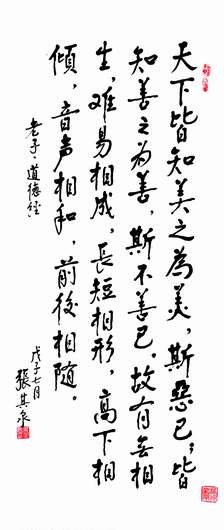 天下皆知美之為美，斯惡已；皆
知善之为善，斯不善已。故有无相
生，难易相成，長短相形，高下相
倾，音声相和，前後相随。
老子·道德经
戊子七月
張其泉